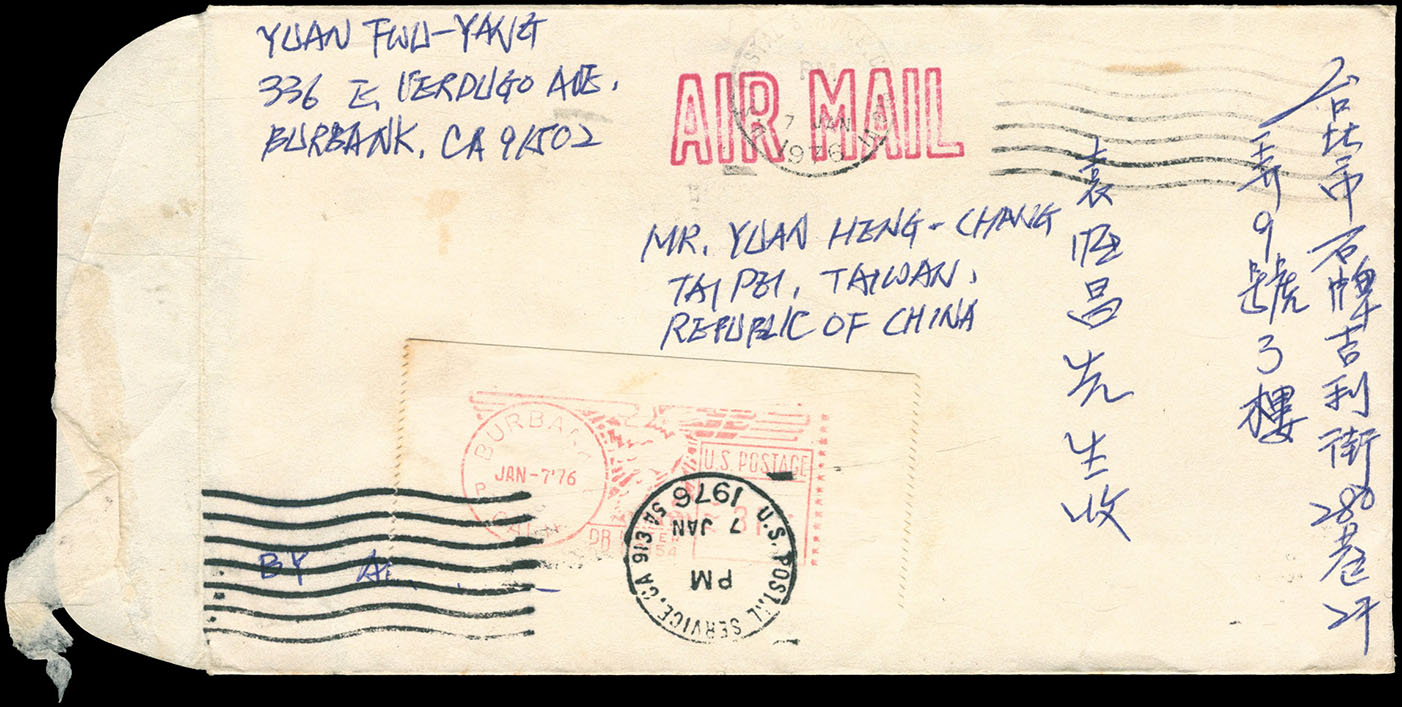 YUAN FWU-YANG
336 E. VERDUGO AVE.
BURBANK, CA 91502
AIR MAIL
PM
7 JAN
1976
MR. YUAN HENG-CHANG
TAIPEI, TAIWAN,
REPUBLIC OF CHINA
台北市石牌吉利街280巷2弄
弄9號3樓
袁恆昌先生收
BURBANK
JAN-7'76
CALIF
U.S. POSTAGE
PB METER
U.S. POSTAL SERVICE, CA 913
5A
PM
7 JAN
1976
BY